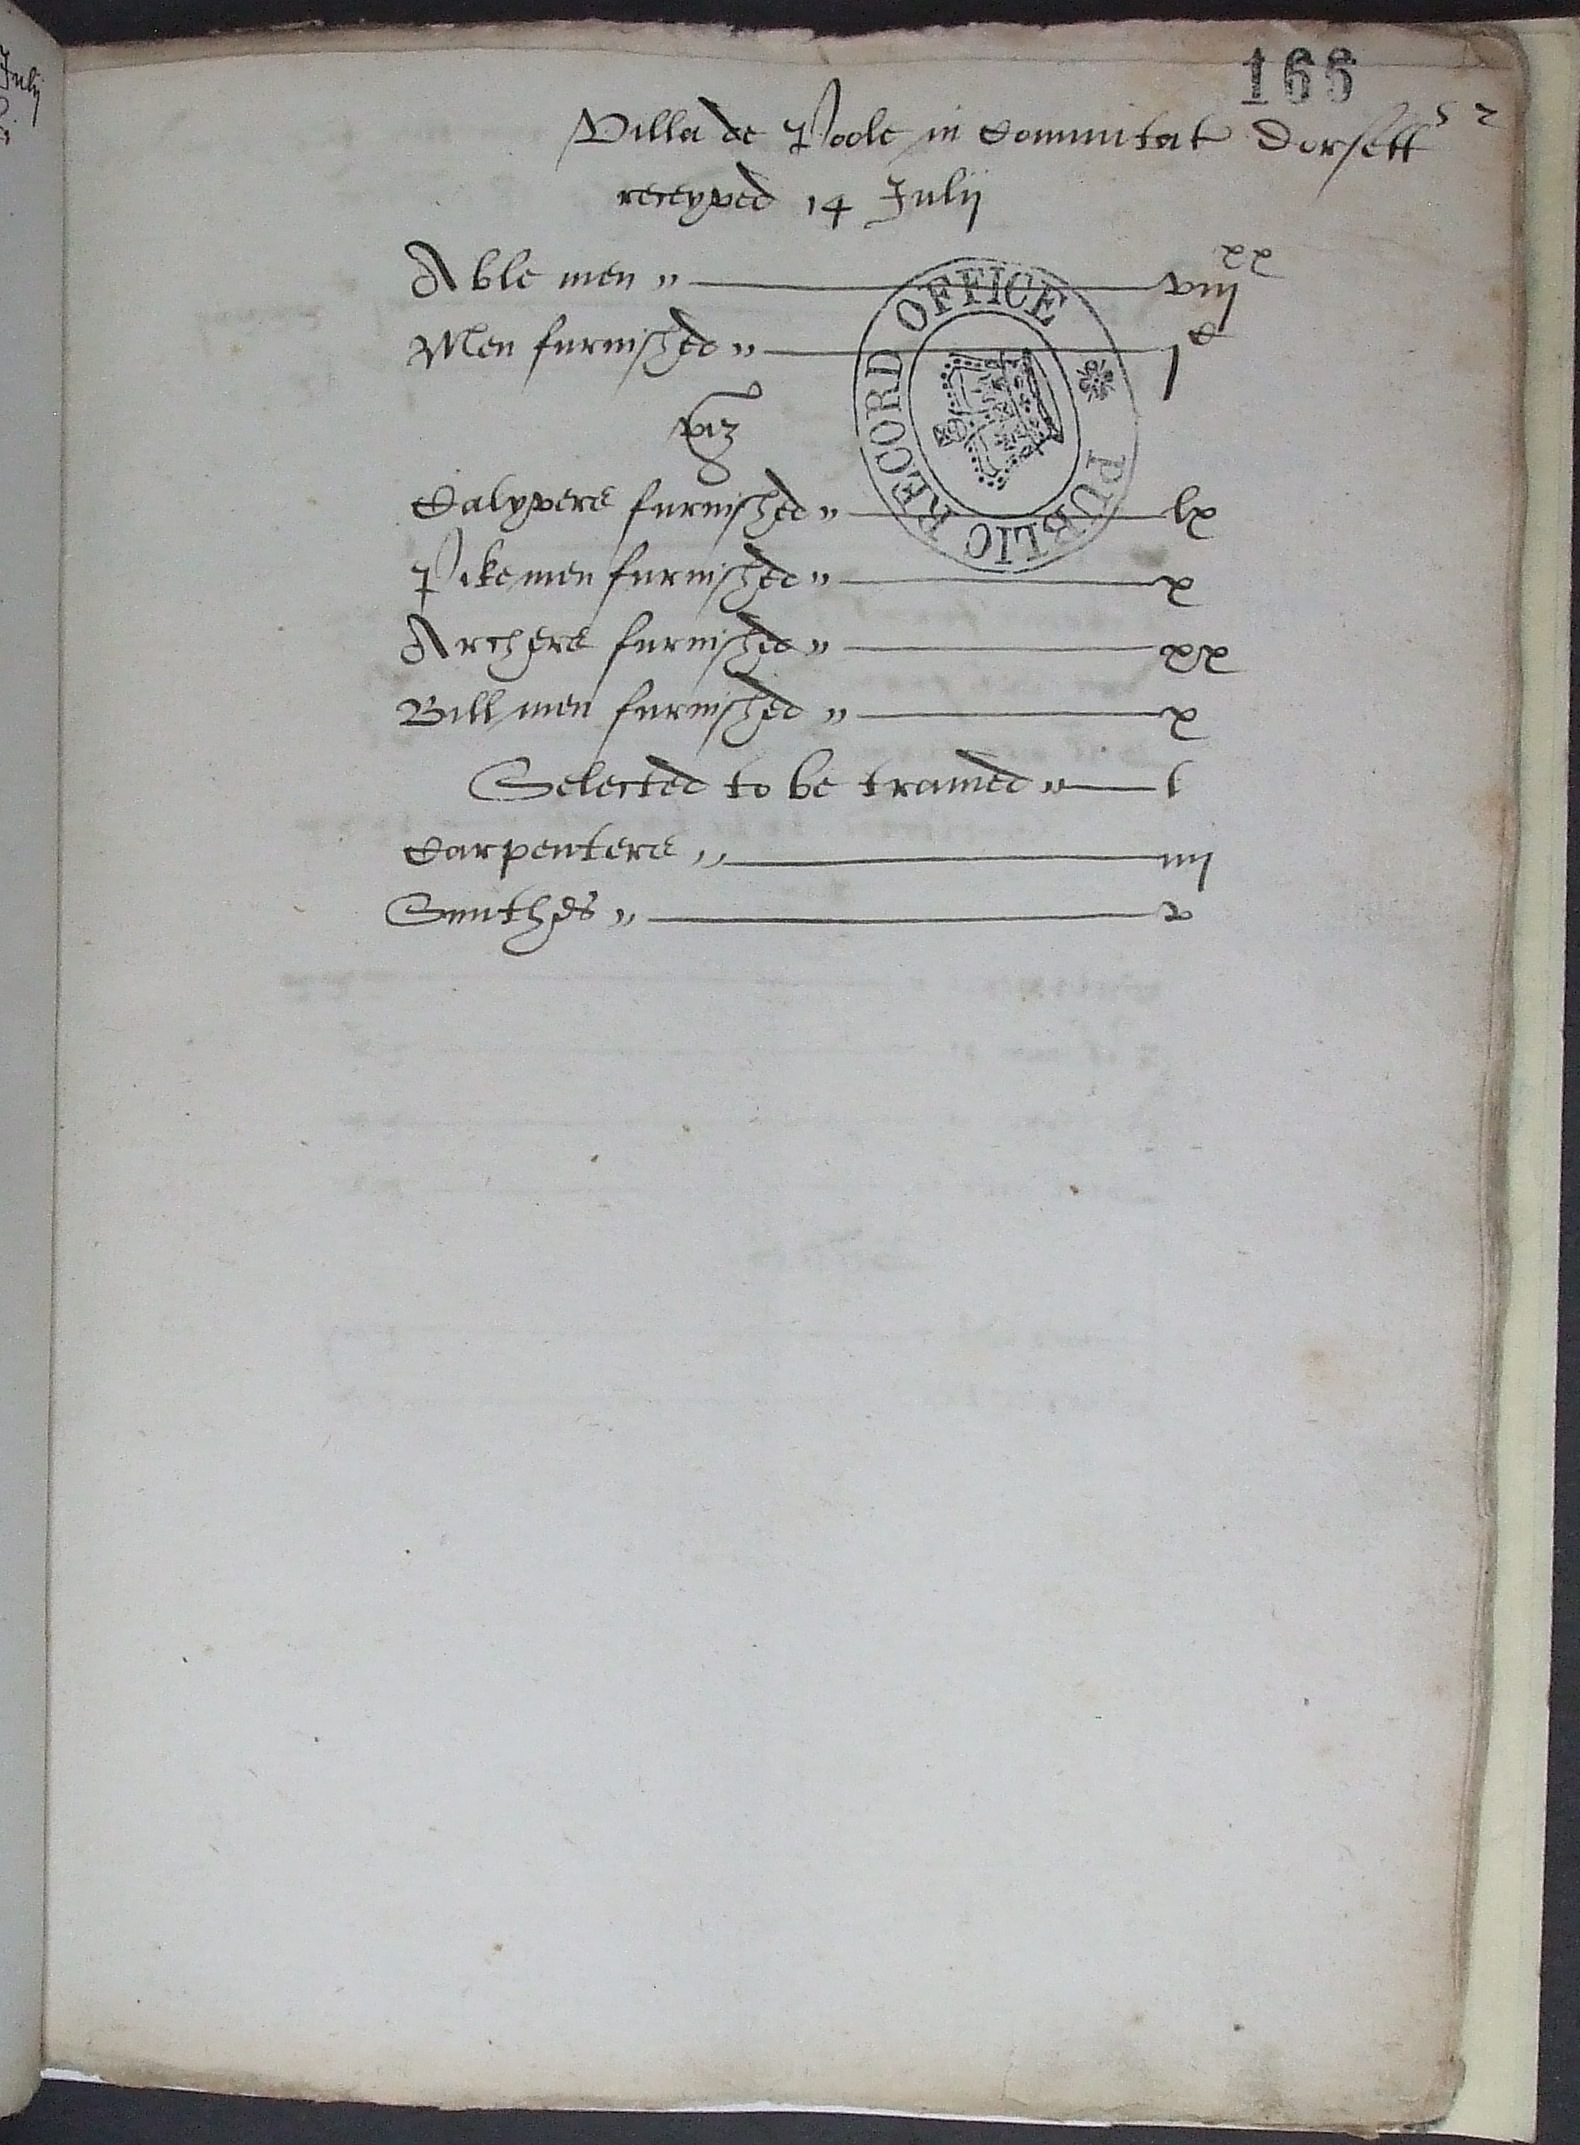 Julij
166
52
Villa de Poole in Commitat Dorsett
receyved 14 Julij
Able men " viij xx
Men furnished " j C
viz
Calyvers furnished " lx
Pikemen furnished " x
Archers furnished " xx
Billmen furnished " x
Selected to be trained " l
Carpenters " iiij
Smithes " v
PUBLIC RECORD OFFICE